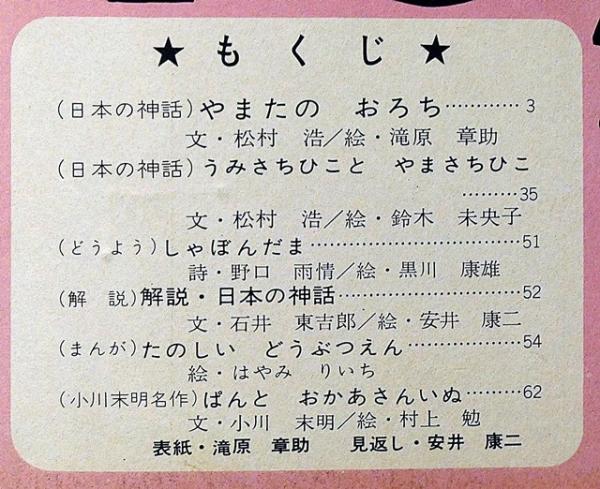 ★ も く じ ★
(日本の神話) やまたの おろち………… 3
文・松村 浩／絵・滝原 章助
(日本の神話) うみさちひこと やまさちひこ
………35
文・松村 浩／絵・鈴木 未央子
(どうよう) しゃぼんだま……………………………51
詩・野口 雨情／絵・黒川 康雄
(解 説) 解説・日本の神話………………………52
文・石井 東吉郎／絵・安井 康二
(まんが) たのしい どうぶつえん………………54
絵・はやみ りいち
(小川末明名作) ぱんと おかあさんいぬ………62
文・小川 末明／絵・村上 勉
表紙・滝原 章助 見返し・安井 康二